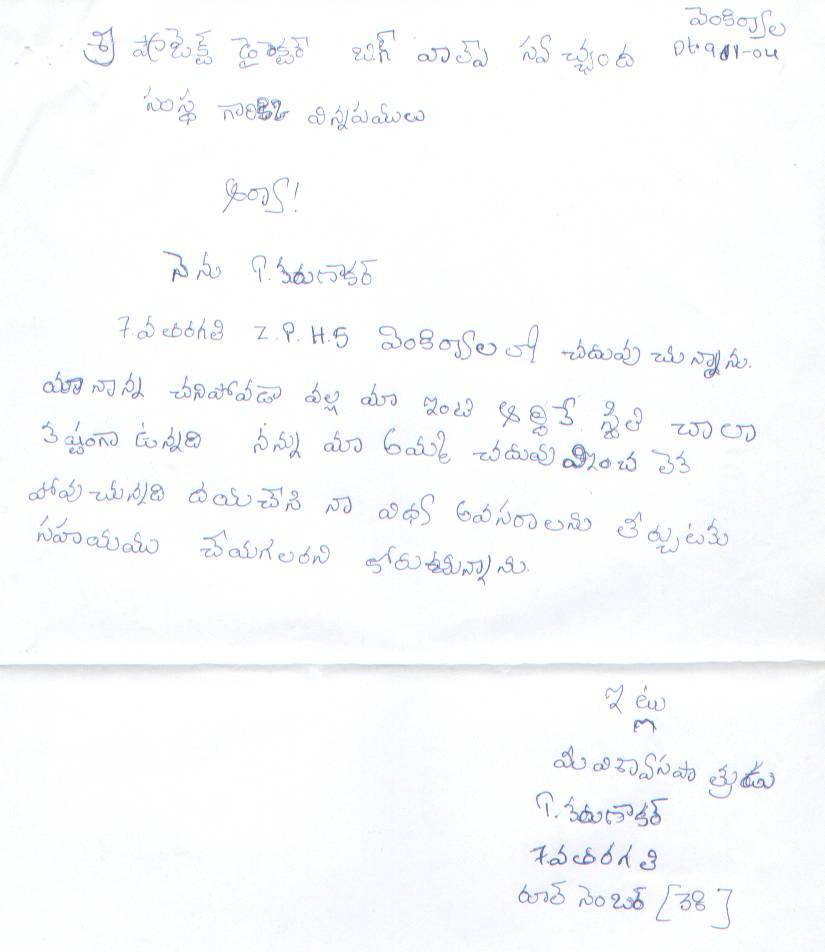 వెంకిర్యాల
శ్రీ ప్రాజెక్ట్ డైరెక్టర్ బిగ్ హెల్ప్ సవచ్ఛంద Dt. 9-11-04
సంస్థ గారికి విన్నపములు
ఆర్యా!
నెను T. కరుణాకర్
7.వ తరగతి Z.P.H.S వెంకిర్యాలలో చదువు చున్నాను.
మా నాన్న చనిపోవడా వల్ల మా ఇంటి ఆర్థిక స్థితి చాలా
కష్టంగా ఉన్నది నన్ను మా అమ్మ చదువు వించ లెక
పోవుచున్నది దయచేసి నా విధ్య అవసరాలను తీర్చుటకు
సహయము చేయగలరని కోరుతున్నాను.
ఇట్లు
మీ విశావ్సపాత్రుడు
T. కరుణాకర్
7వ తరగతి
రూల్ నెంబర్ [38]